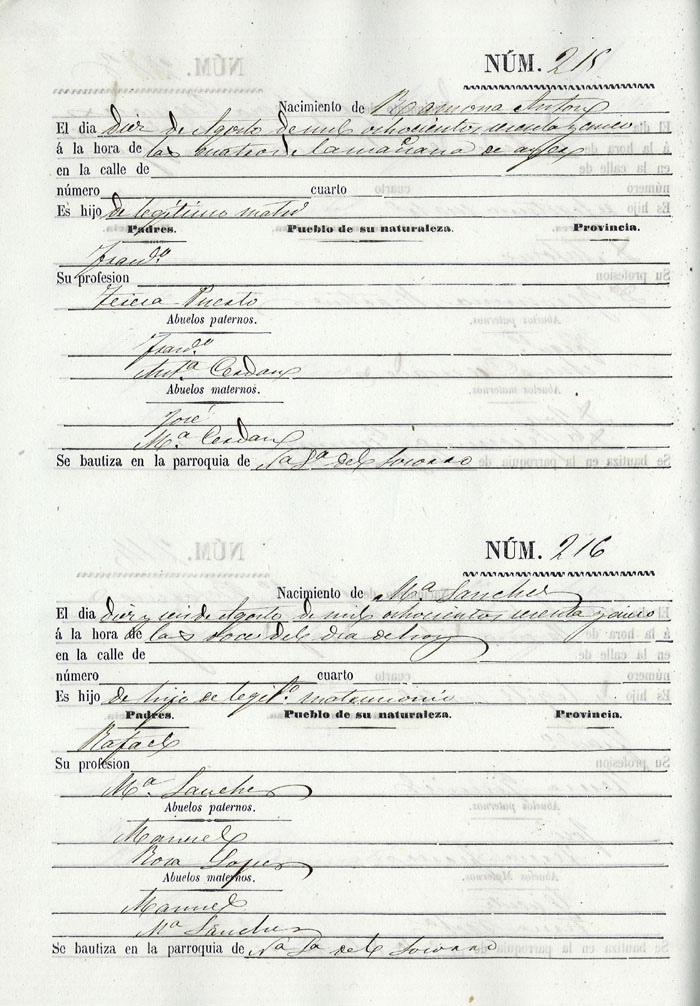 NÚM. 215
Nacimiento de Ramona Anton
El dia diez de Agosto de mil ochocientos sesenta y cinco
á la hora de las cuatro de la mañana de ayer
en la calle de
número cuarto
Es hijo de legítimo matrº
Padres. Pueblo de su naturaleza. Provincia.
Franº
Su profesion
Puerto
Abuelos paternos.
Franº
Antª Cerdan
Abuelos maternos.
José
Mª Cerdan
Se bautiza en la parroquia de Nª Sª del Socorro
NÚM. 216
Nacimiento de Mª Sanchez
El dia diez y seis de Agosto de mil ochocientos sesenta y cinco
á la hora de las doce del dia de hoy
en la calle de
número cuarto
Es hijo de hijo de legitº matrimonio
Padres. Pueblo de su naturaleza. Provincia.
Rafael
Su profesion
Mª Sanchez
Abuelos paternos.
Manuel
Rosa Lopez
Abuelos maternos.
Manuel
Mª Sanchez
Se bautiza en la parroquia de Nª Sª del Socorro